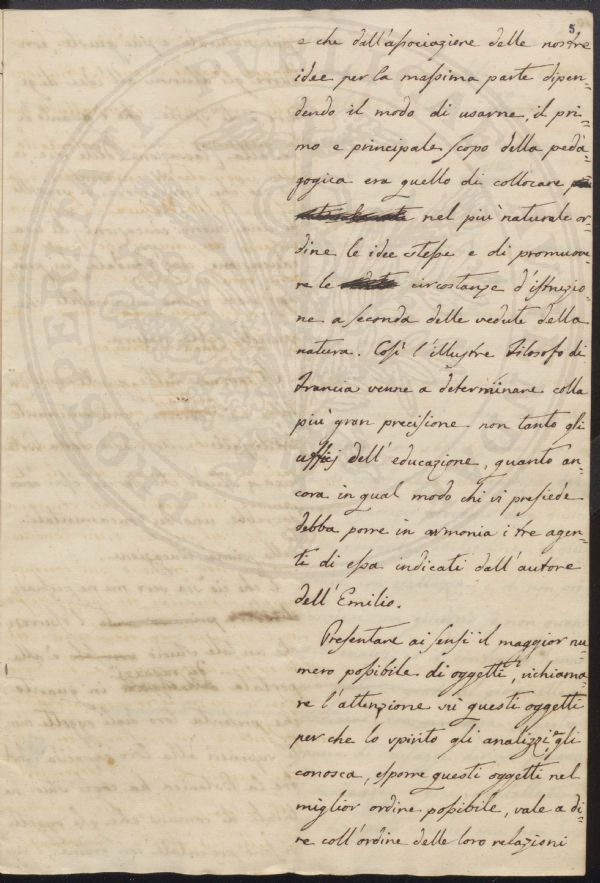 5
e che dall'associazione delle nostre
idee per la massima parte dipen=
dendo il modo di usarne, il pri=
mo e principale scopo della peda=
gogica era quello di collocare
nel più naturale or=
dine le idee stesse e di promuove=
re le circostanze d'istruzio=
ne a seconda delle vedute della
natura. Così l'illustre Filosofo di
Francia venne a determinare colla
più gran precisione non tanto gli
ufficj dell'educazione, quanto an=
cora in qual modo chi vi presiede
debba porre in armonia i tre agen=
ti di essa indicati dall'autore
dell'Emilio.
Presentare ai sensi il maggior nu=
mero possibile di oggetti, richiama=
re l'attenzione su questi oggetti
per che lo spirito gli analizzi e gli
conosca, esporre questi oggetti nel
miglior ordine possibile, vale a di=
re coll'ordine delle loro relazioni
PROSPERITATI PUBLICAE